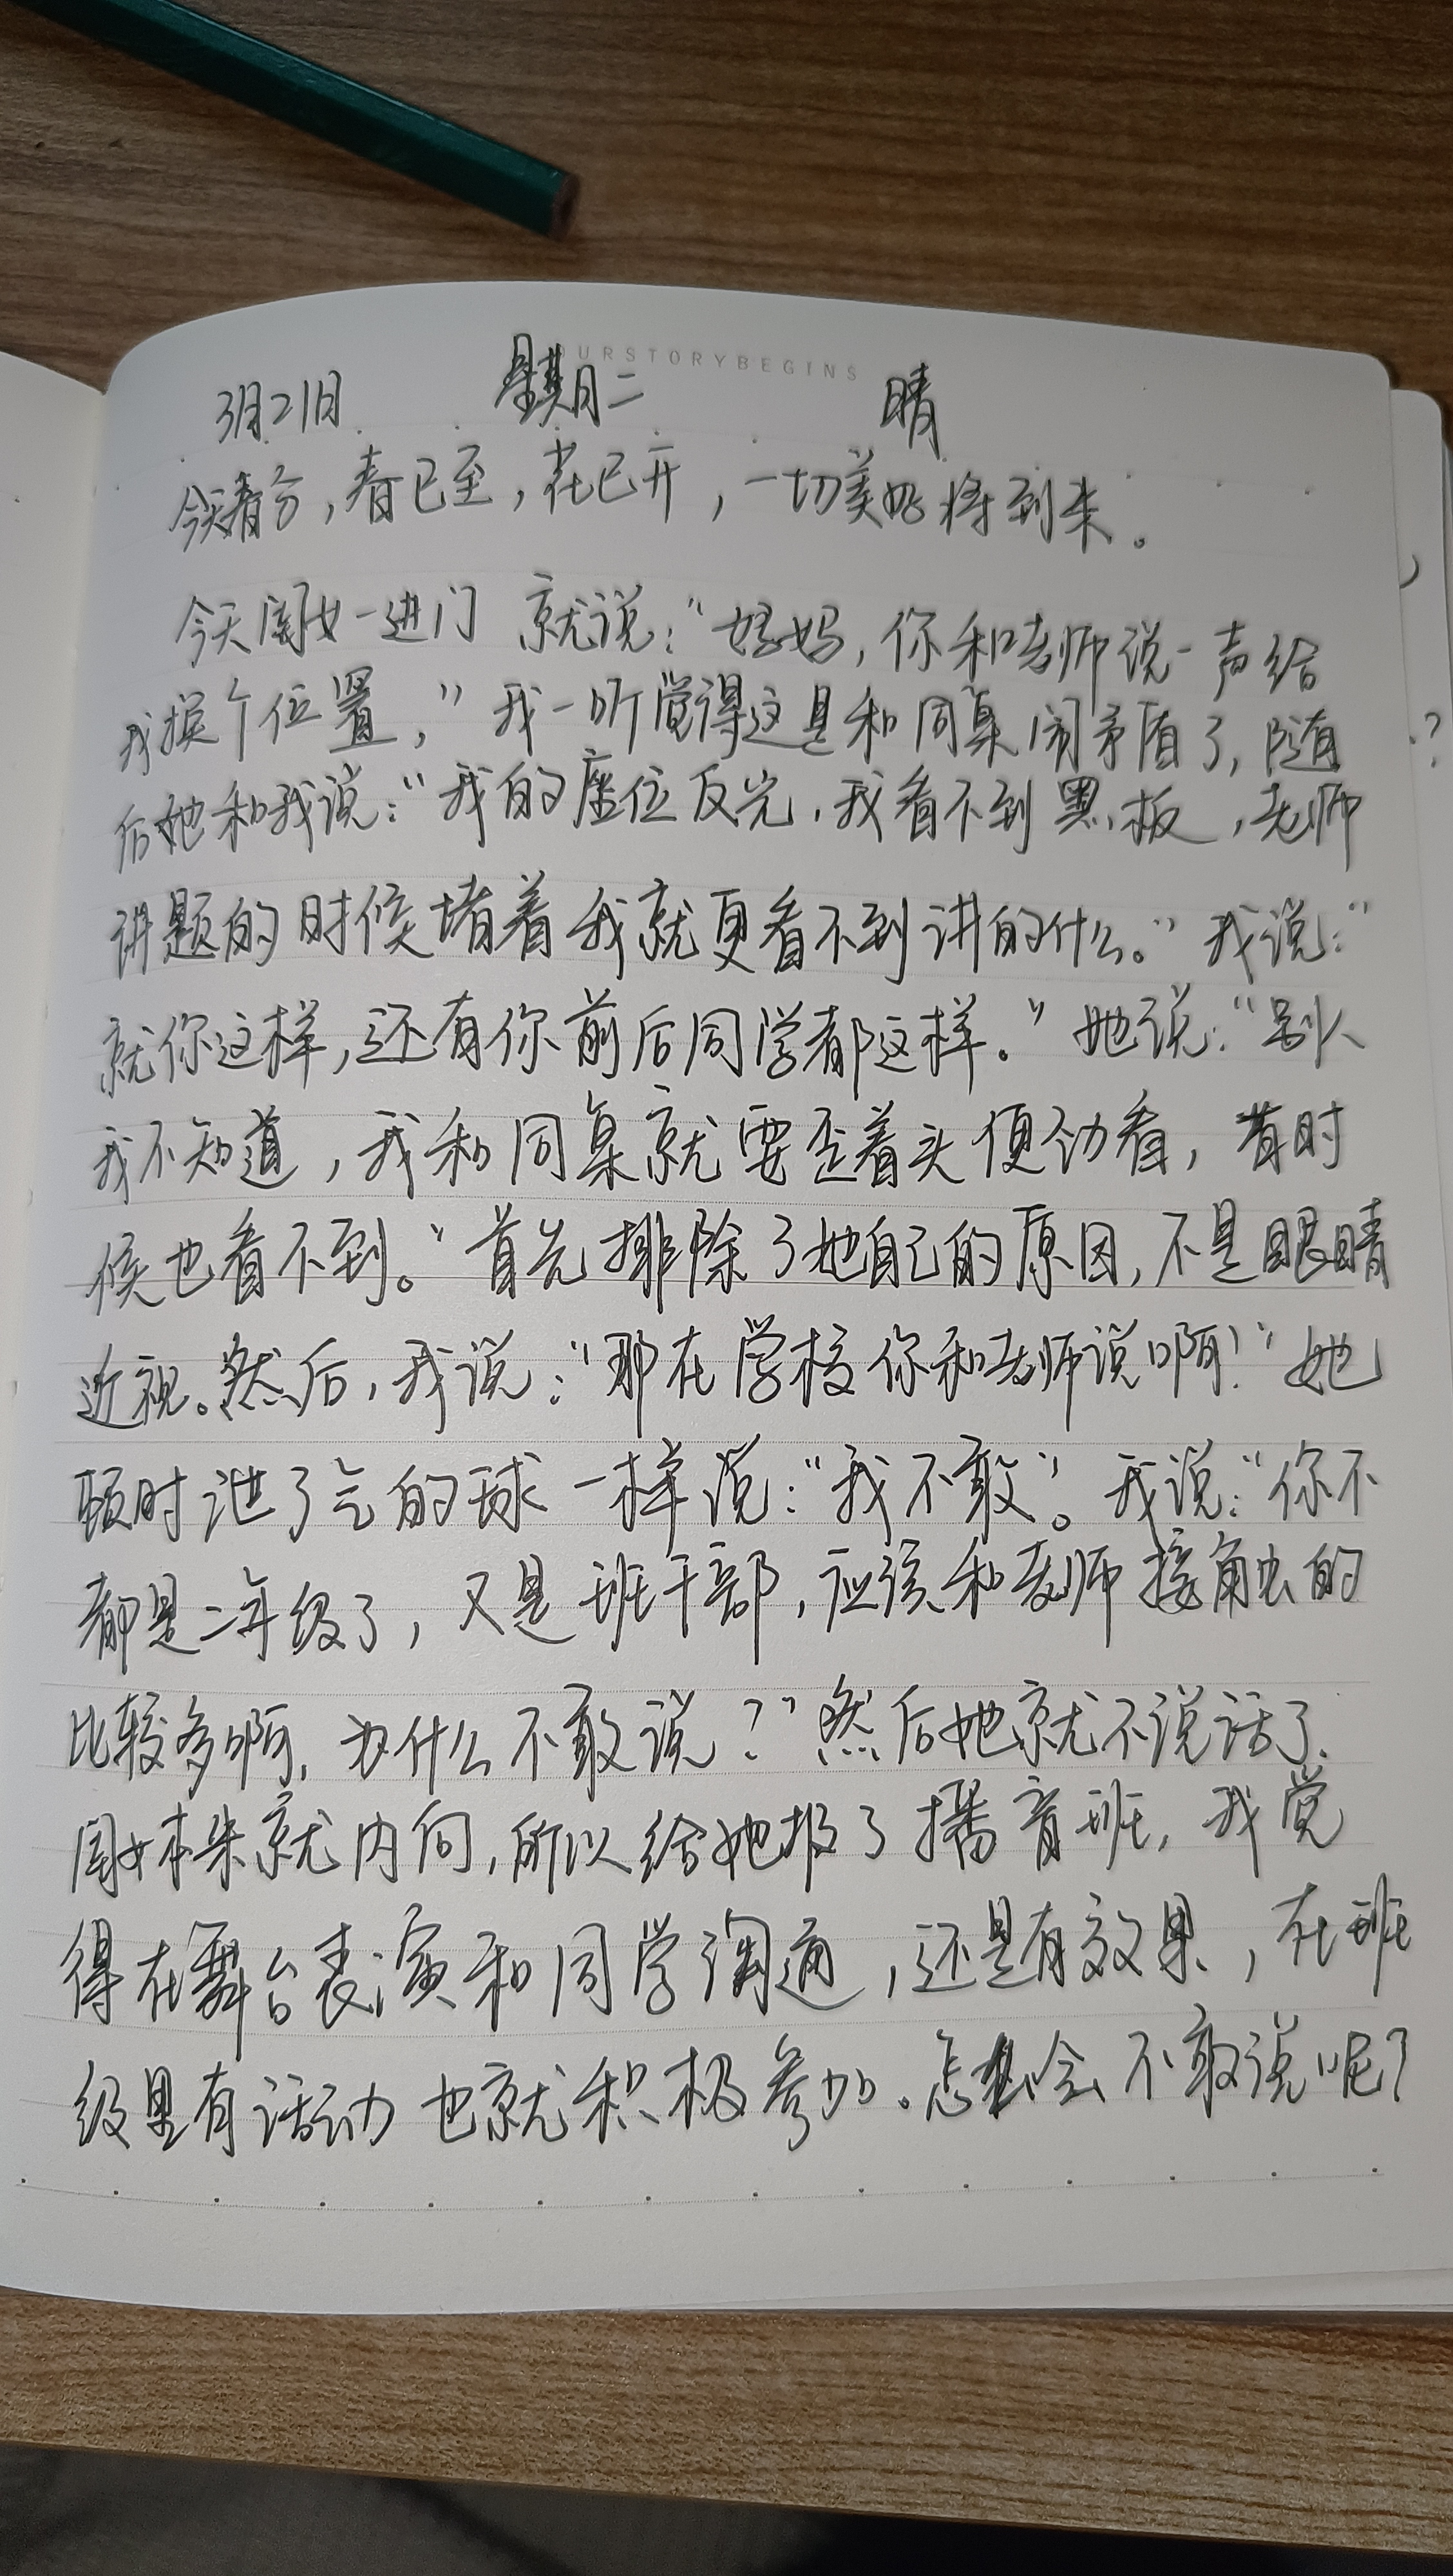 URSTORYBEGINS
3月21日 星期二 晴
今天春分，春已至，花已开，一切美好将到来。
今天闺女一进门 就说：“妈妈，你和老师说一声给
我换个位置，”我一听觉得这是和同桌闹矛盾了，随
后她和我说：“我的座位反光，我看不到黑板，老师
讲题的时候堵着我就更看不到讲的什么。”我说：“
就你这样，还有你前后同学都这样。”她说：“别人
我不知道，我和同桌就要歪着头使劲看，有时
候也看不到。”首先排除了她自己的原因，不是眼睛
近视。然后，我说：“那在学校你和老师说啊！”她
顿时泄了气的球一样说：“我不敢”。我说：“你不
都是二年级了，又是班干部，应该和老师接触的
比较多啊，为什么不敢说？”然后她就不说话了.
闺女本来就内向，所以给她报了播音班，我觉
得在舞台表演和同学沟通，还是有效果，在班
级里有活动也就积极参加。怎么会不敢说呢？